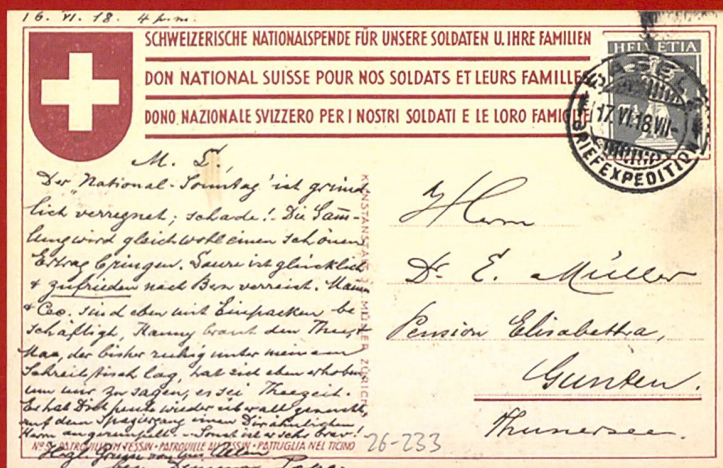 16. VI. 18. 4 p.m.
SCHWEIZERISCHE NATIONALSPENDE FÜR UNSERE SOLDATEN U. IHRE FAMILIEN
DON NATIONAL SUISSE POUR NOS SOLDATS ET LEURS FAMILLE
DONO NAZIONALE SVIZZERO PER I NOSTRI SOLDATI E LE LORO FAMIGLIE
HELVETIA
17.VI.18.VII-
BRIEFEXPEDITION
M. L.!
Der "National-Sonntag" ist gründ-
lich verregnet; schade! Die Samm-
lung wird gleichwohl einen schönen
Ertrag bringen. ist glücklich
& zufrieden nach Bern verreist.
& sind eben mit Einpacken be
schäftigt, braut den Thee, &
der bisher ruhig unter meinem
Schreibtisch lag, hat sich eben erhoben
um mir zu sagen, es sei Theezeit.
Er hat Dich heute wieder überall gesucht,
auf dem Spaziergang einen Dir ähnlichen
Herrn angerempelt. - Sonst ist er sehr brav!
Herzl. Grüsse von uns Allen
Papa.
KUNSTANSTALT MÜLLER ZÜRICH
Nº PATROUILLE IM TESSIN · PATROUILLE AU TESSIN · PATTUGLIA NEL TICINO
26-233
Herrn
Dr. E. Müller
Pension Elisabetha,
Gunten.
Thunersee.